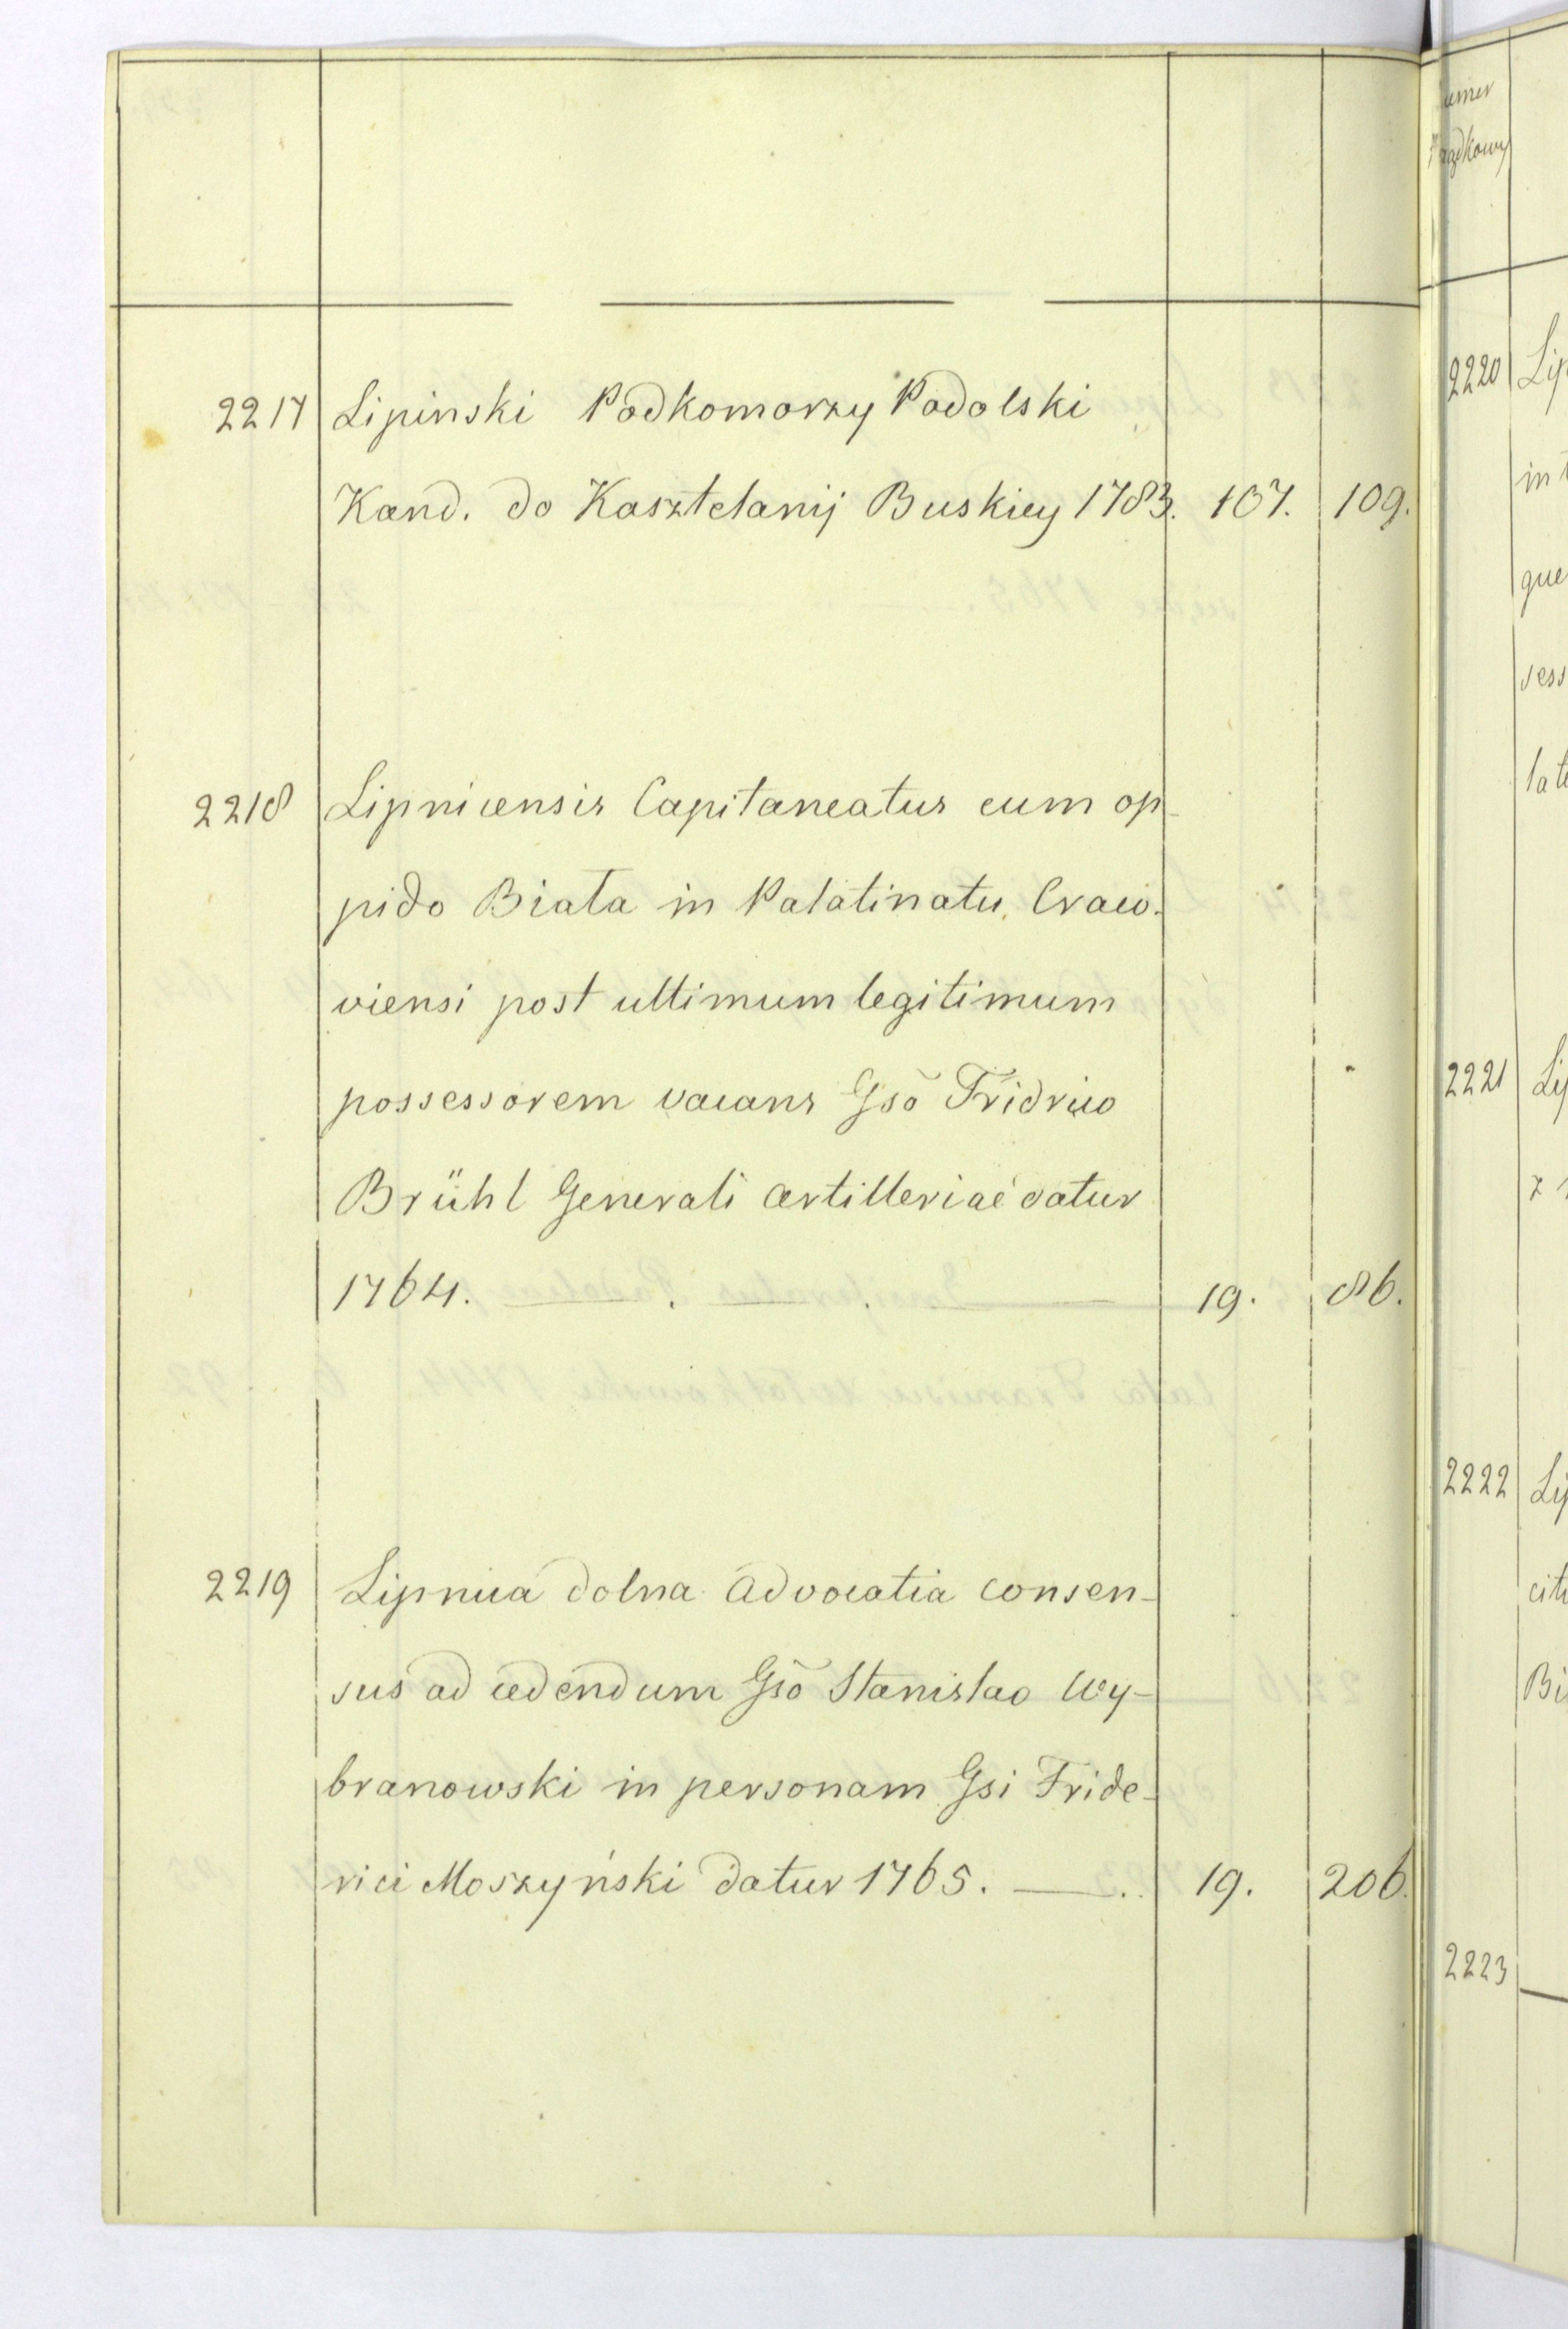 2217 Lipinski Podkomorzy Podolski
Kand. do Kasztelanij Buskiey 1783. 107. 109.
2218 Lipnicensis Capitaneatus cum op-
pido Biała in Palatinatu Craco-
viensi post ultimum legitimum
possessorem vacans Gsõ Fridrico
Brühl Generali artilleriae datur
1764. 19. 86.
2219 Lipnica dolna advocatia consen-
sus ad cedendum Gsõ Stanislao Wy-
branowski in personam Gsi Fride-
rici Moszyński datur 1765. 19. 206.
2220 Lip
in t
que
sess
late
2221 Lip
z
2222 Lip
cit
Bi
2223